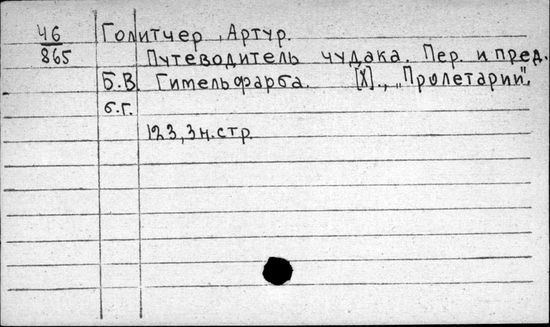 46 Голитчер, Артур.
865 Путеводитель чудака. Пер. и пред.
Б.В. Гимельфарба. [Х]., „Пролетарий",
б.г.
123, 3 н. стр.